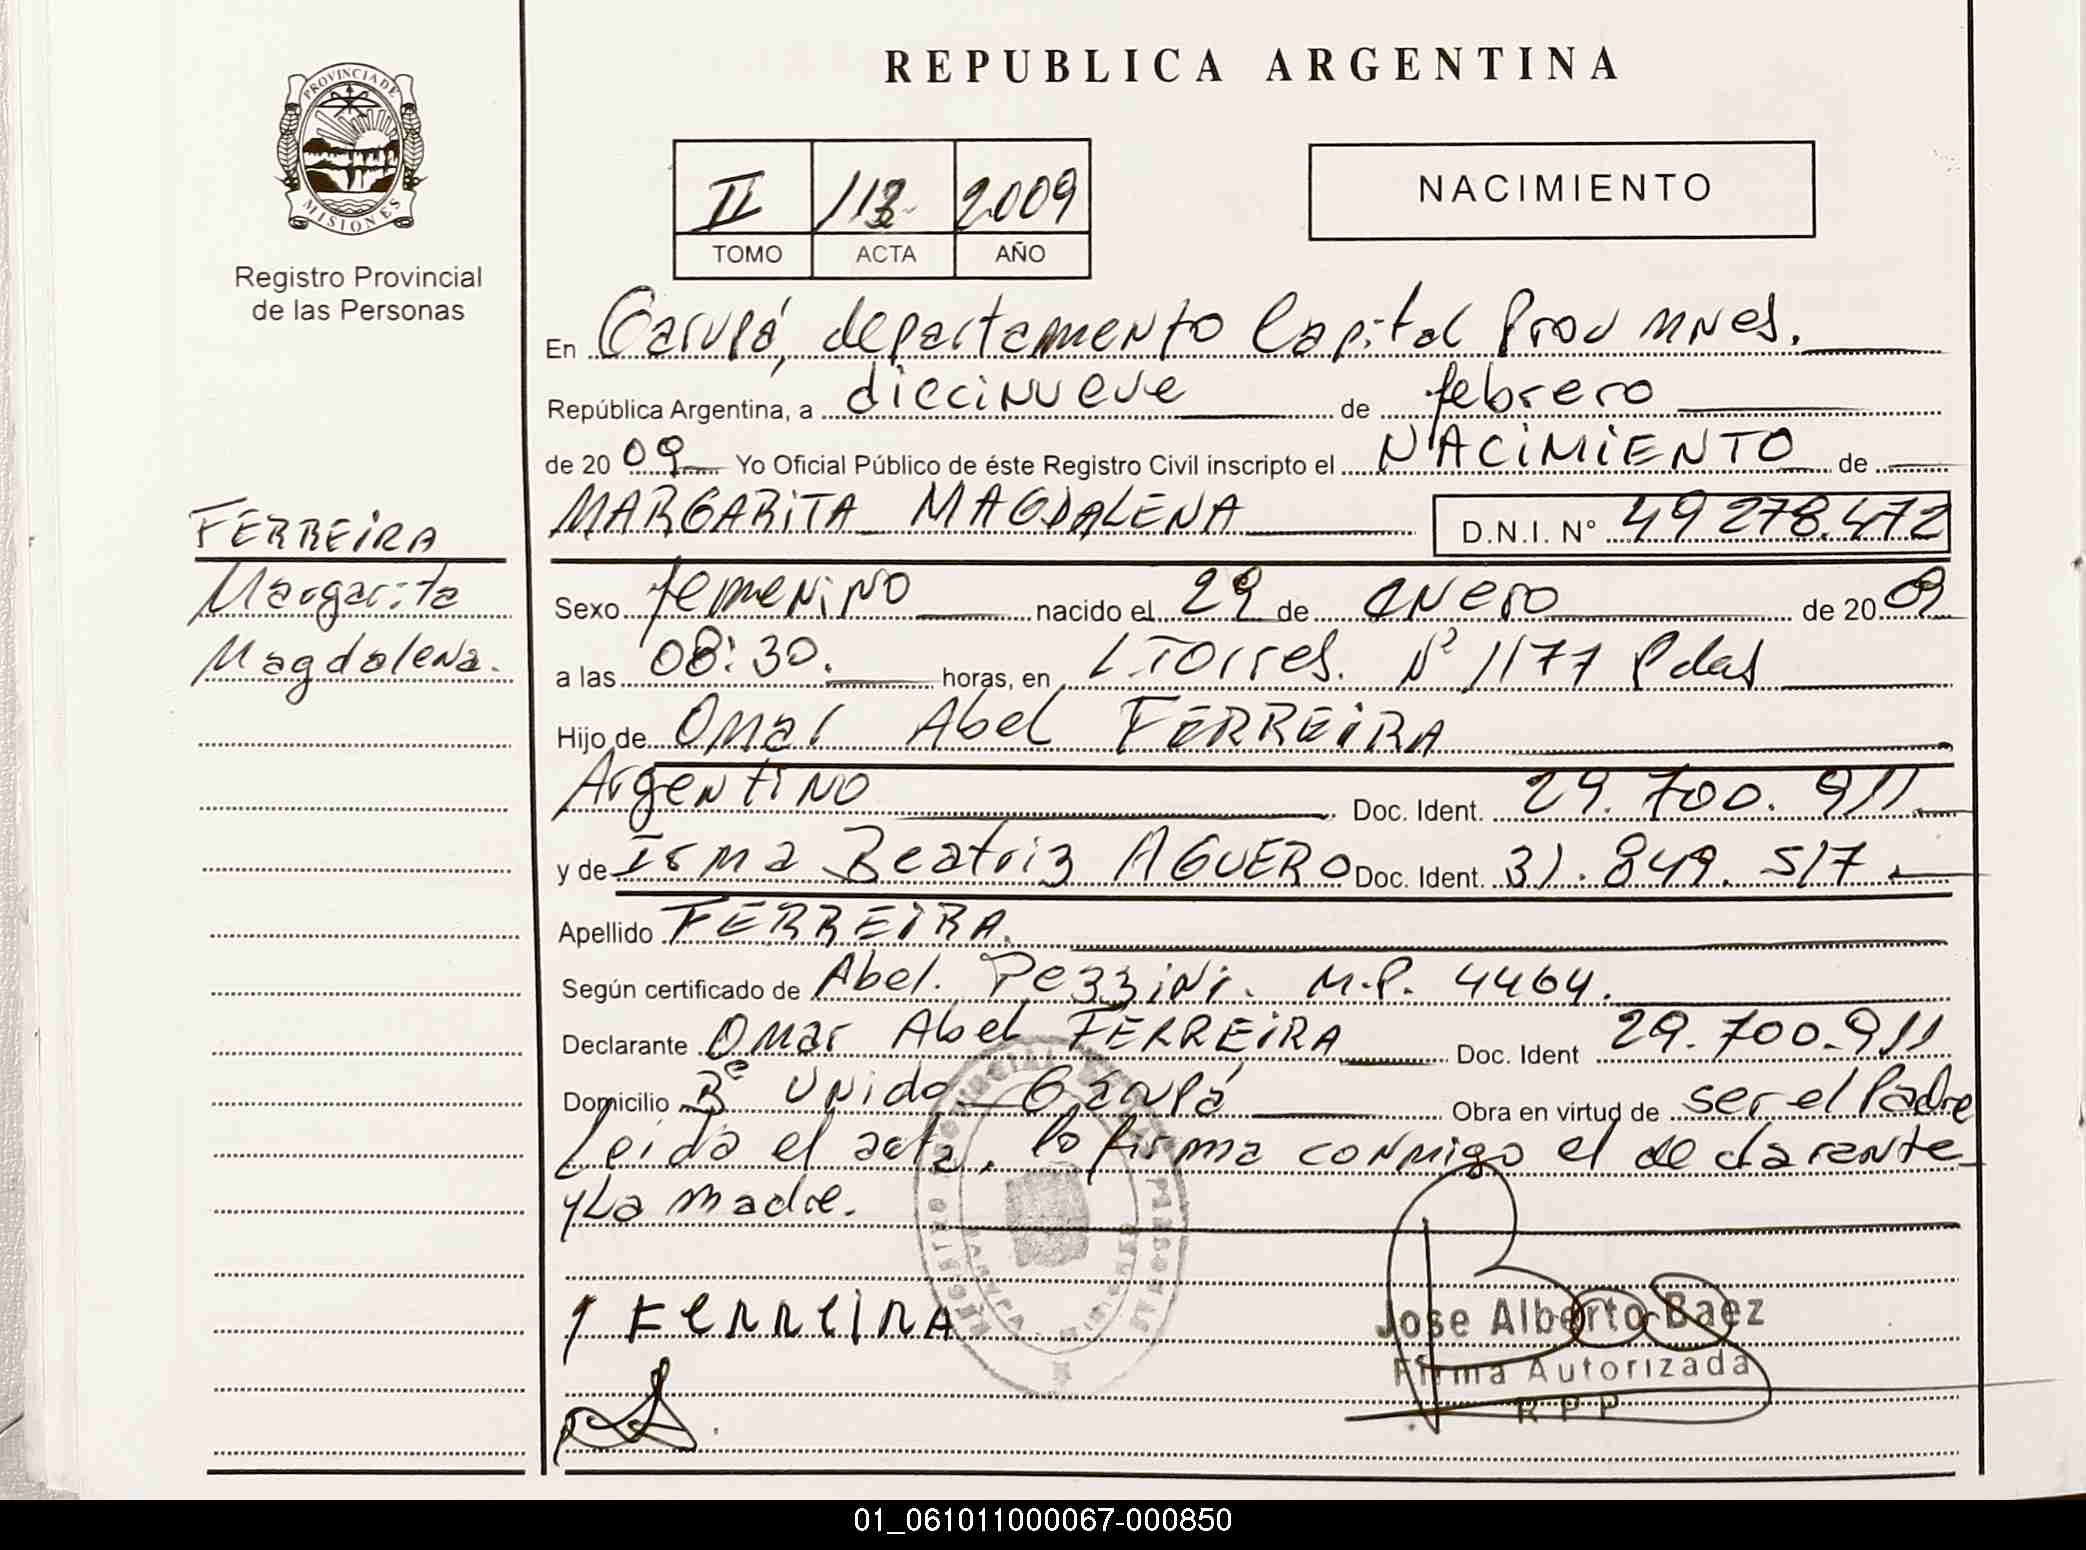 REPUBLICA ARGENTINA
PROVINCIA DE
MISIONES
Registro Provincial
de las Personas
II 2009
TOMO ACTA AÑO
NACIMIENTO
En Garupá, departamento Capital Prov Mnes.
República Argentina, a diecinueve de febrero
de 20 09 Yo Oficial Público de éste Registro Civil inscripto el NACIMIENTO de
MARGARITA MAGDALENA D.N.I. N° 49278.472
FERREIRA
Margarita
Magdalena.
Sexo femenino nacido el 29 de enero de 20 09
a las 08:30. horas, en L.Torres. N° 1177 Pdas
Hijo de Omar Abel FERREIRA
Argentino Doc. Ident. 29.700.911
y de Irma Beatriz AGUERO Doc. Ident. 31.849.517.
Apellido FERREIRA.
Según certificado de Abel. Pezzini. M.P. 4464.
Declarante Omar Abel FERREIRA Doc. Ident 29.700.911
Domicilio B° Unido Garupá Obra en virtud de ser el Padre
Leida el acta, lo firma conmigo el declarante
y La madre.
FERREIRA
Jose Alberto Baez
Firma Autorizada
R P P
01_061011000067-000850